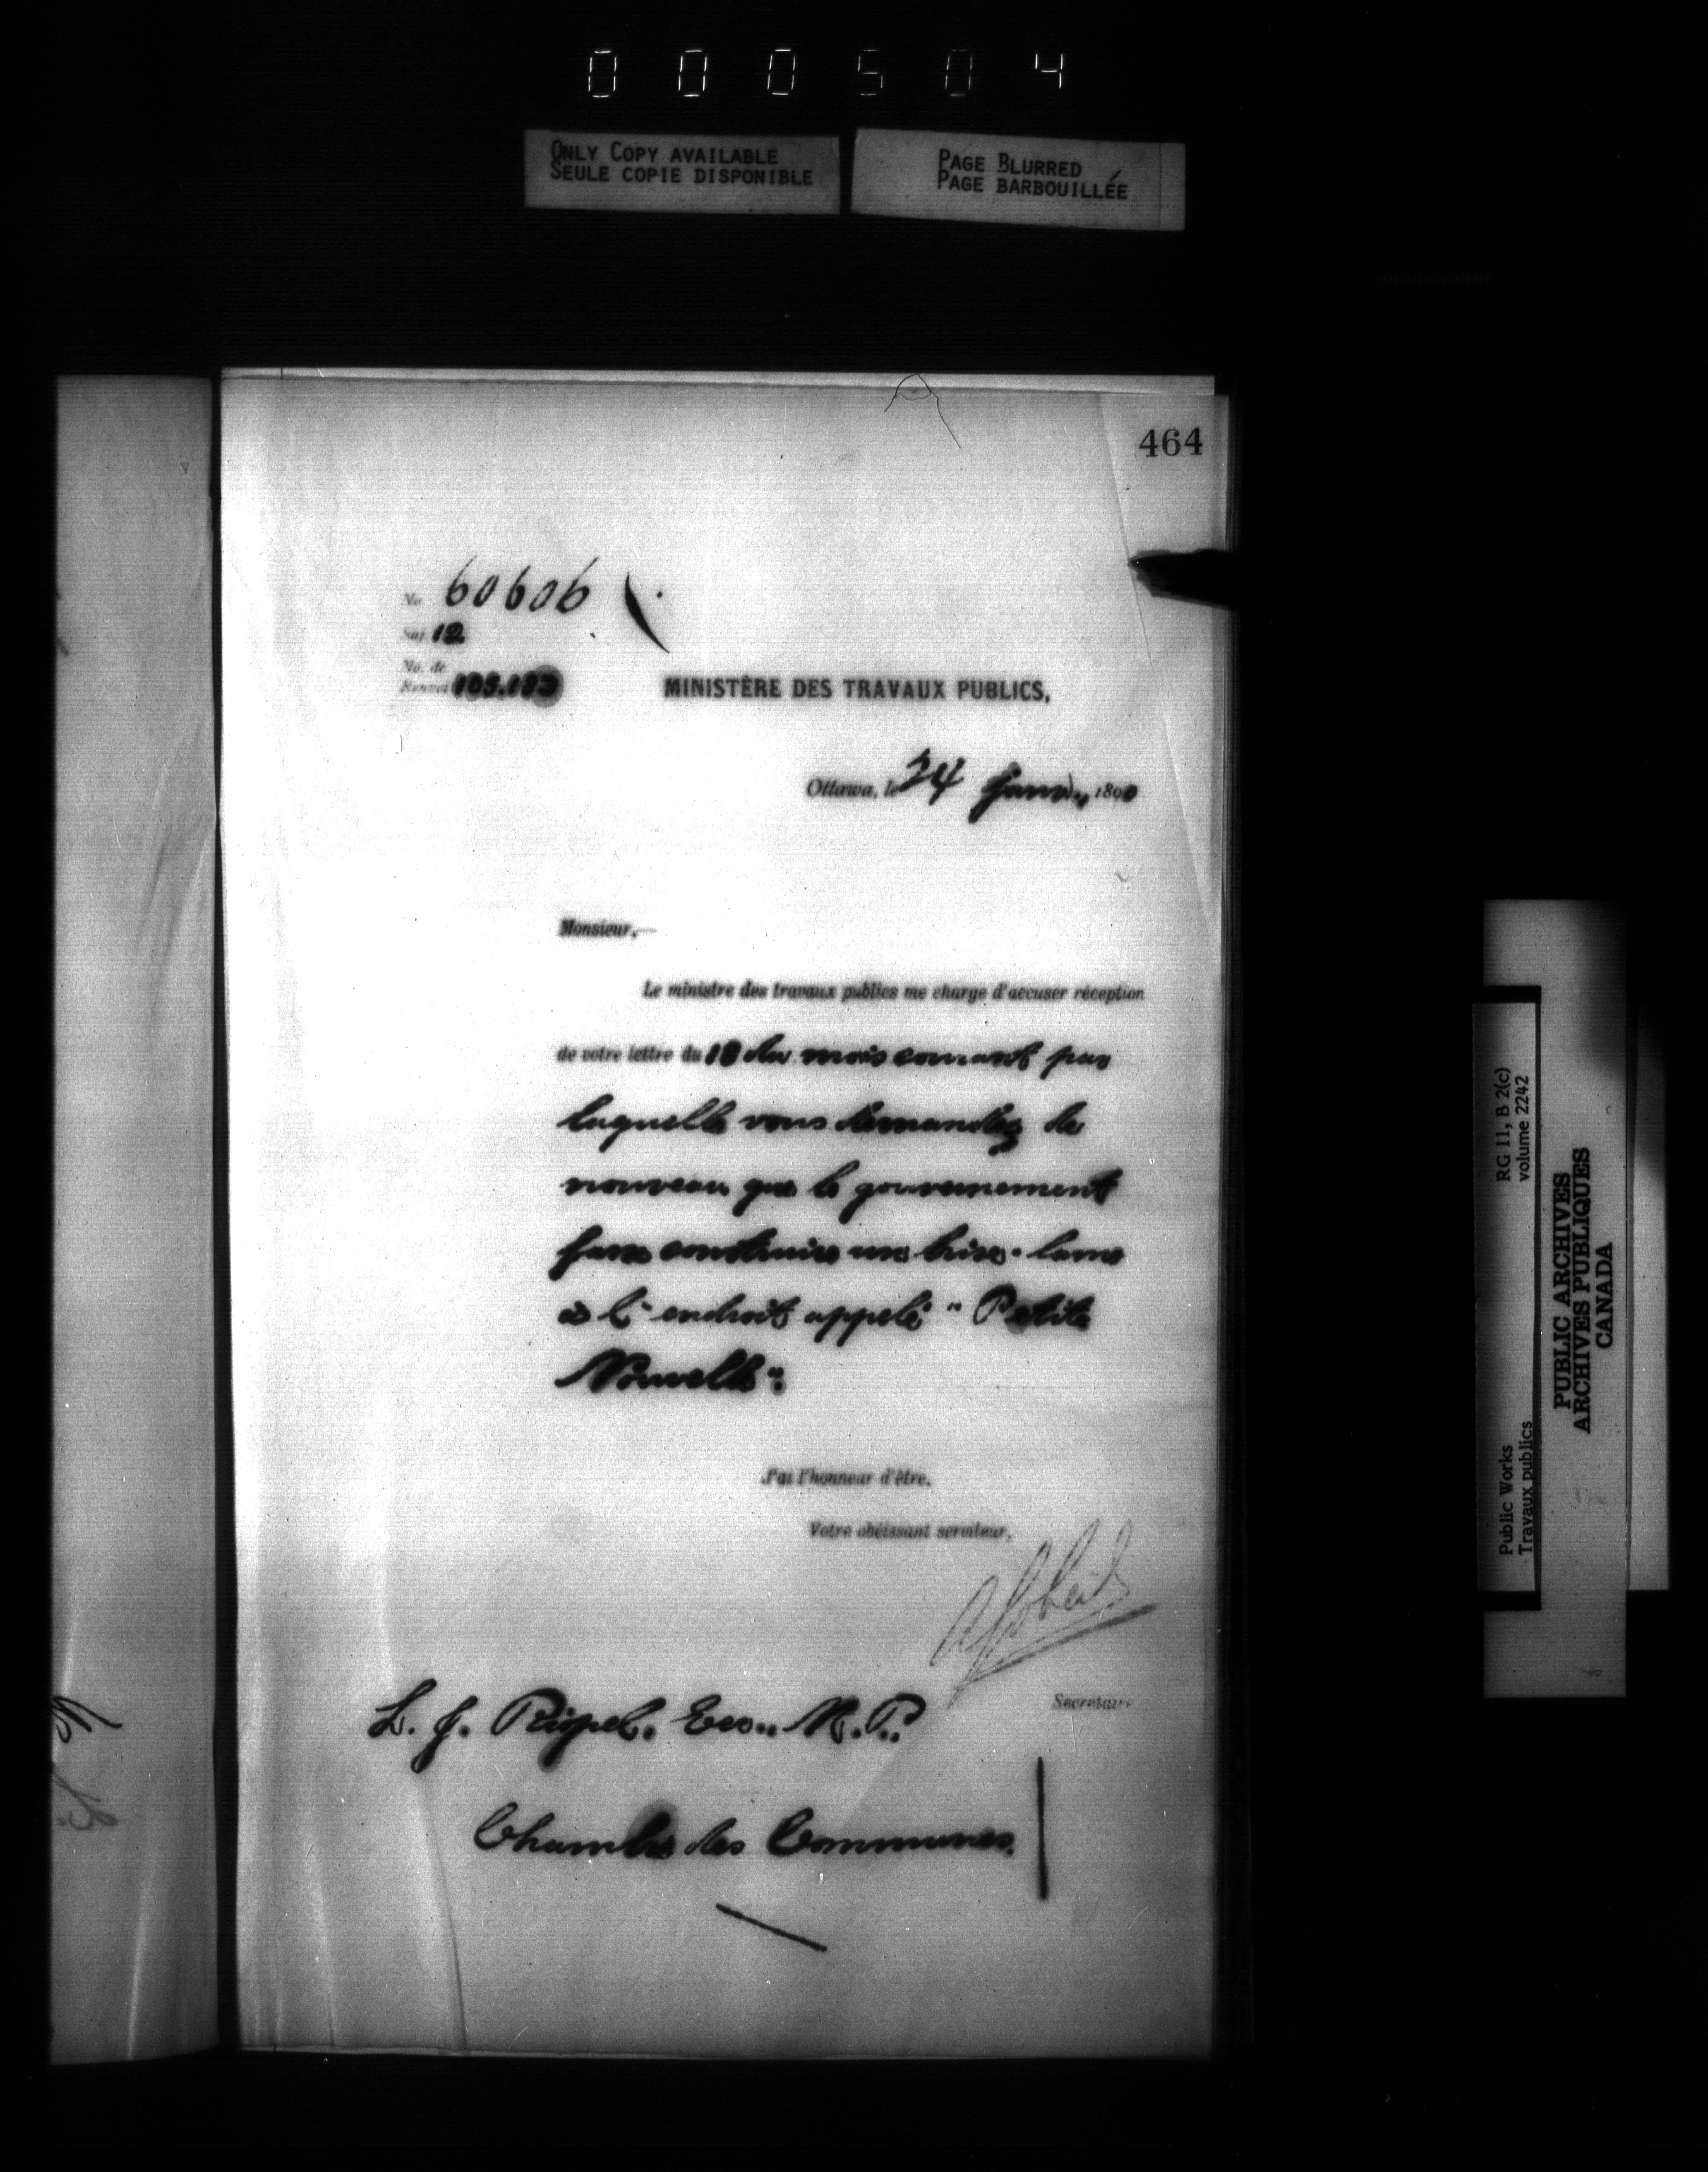 000504
ONLY COPY AVAILABLE
SEULE COPIE DISPONIBLE
PAGE BLURRED
PAGE BARBOUILLÉE
464
No. 60606
Suj. 12
No. de
Renvoi 105.183
MINISTÈRE DES TRAVAUX PUBLICS,
Ottawa, le 24 Janv., 1890
Monsieur,—
Le ministre des travaux publics me charge d'accuser réception
de votre lettre du 18 du mois courant par
laquelle vous demandez de
nouveau que le gouvernement
fasse construire un brise-lame
à l'endroit appelé "Petite
Nouvelle".
J'ai l'honneur d'être,
Votre obéissant serviteur,
A Gobeil
Secrétaire
L. J. Riopel, Ecr., M.P.
Chambre des Communes.
RG 11, B 2(c)
volume 2242
Public Works
Travaux publics
PUBLIC ARCHIVES
ARCHIVES PUBLIQUES
CANADA